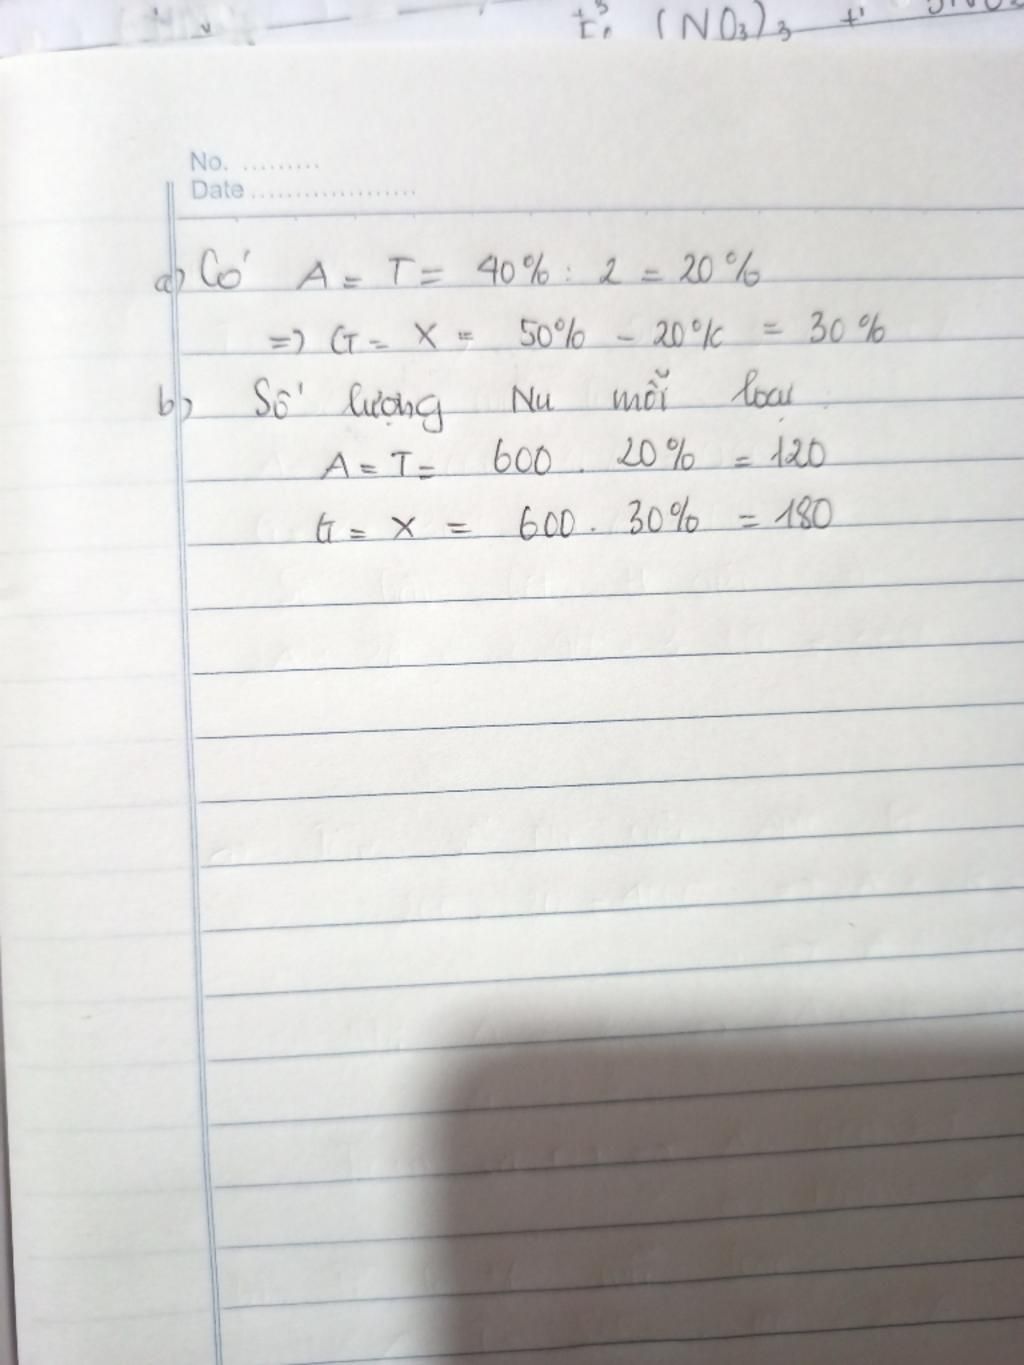 (NO3)3 +
No. .........
Date ...................
a) Có A = T = 40% : 2 = 20%
=) G = X = 50% - 20% = 30%
b) Số lượng Nu mỗi loại
A = T = 600 . 20% = 120
G = X = 600 . 30% = 180